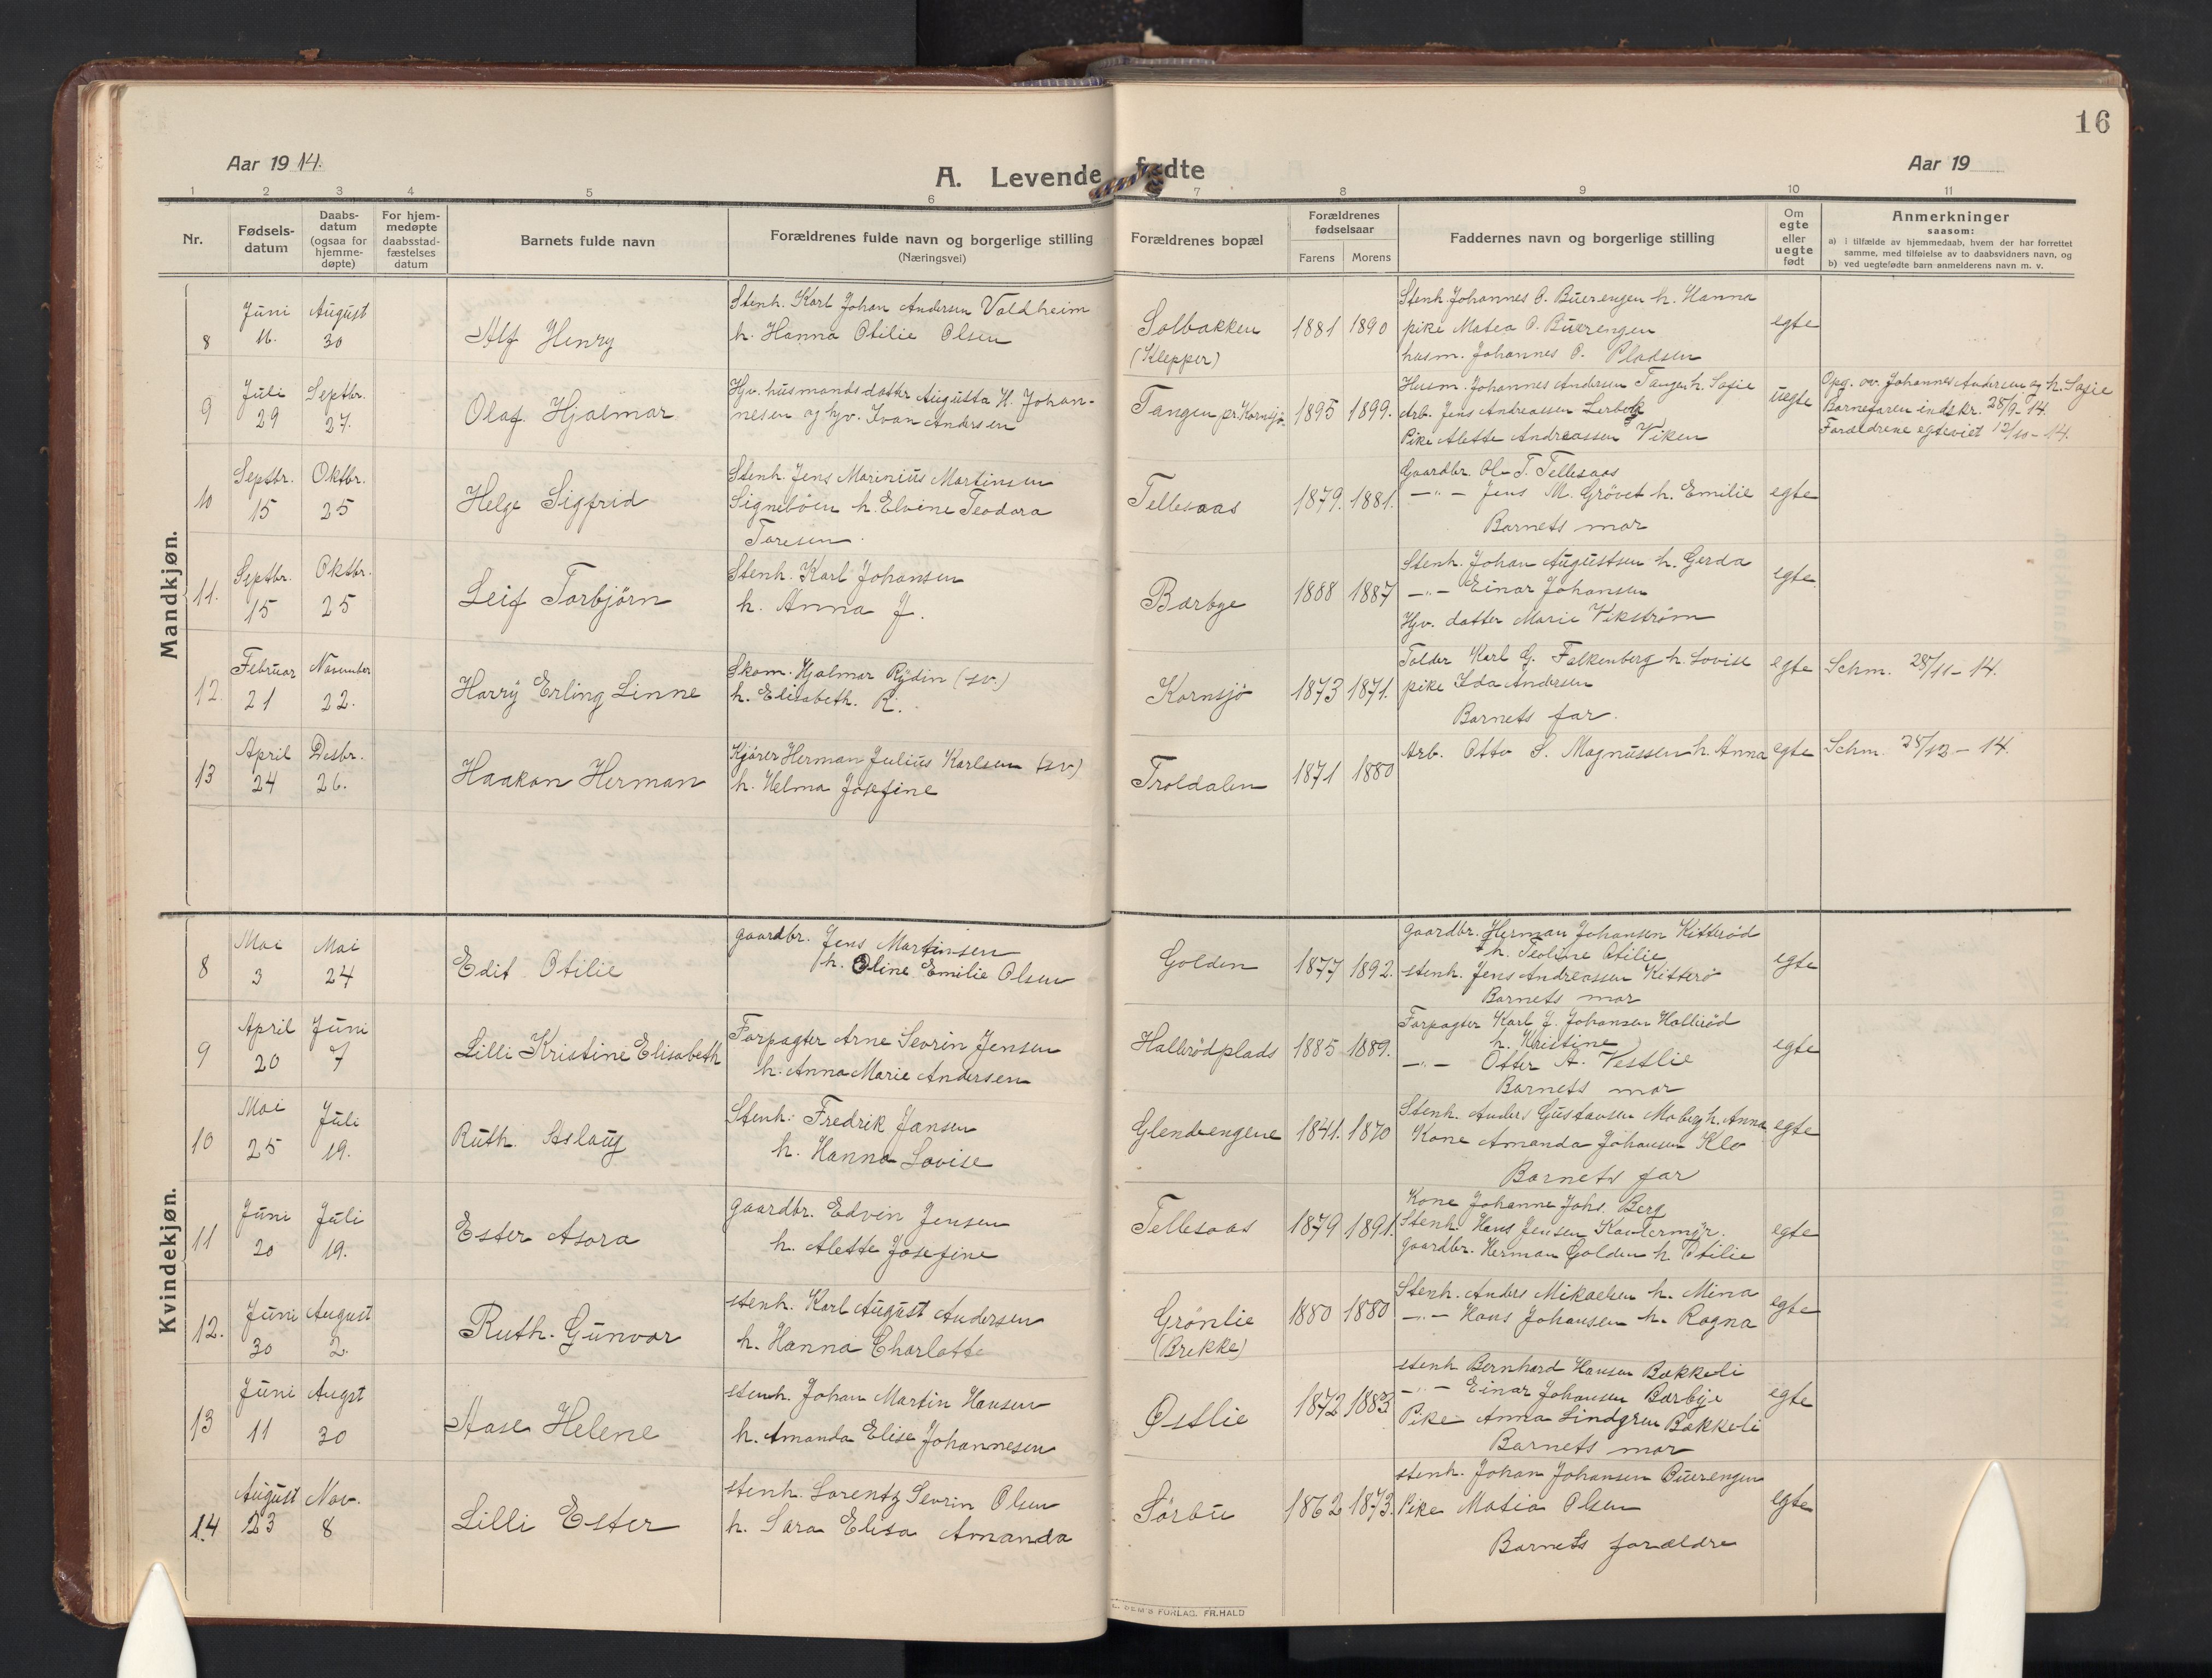 16
Aar 19 14.
A. Levende fødte
Aar 19
1 2 3 4 5 6 7 8 9 10 11
Nr.
Fødsels-
datum
Daabs-
datum
(ogsaa for
hjemme-
døpte)
For hjem-
medøpte
daabsstad-
fæstelses
datum
Barnets fulde navn
Forældrenes fulde navn og borgerlige stilling
(Næringsvei)
Forældrenes bopæl
Forældrenes
fødselsaar
Farens Morens
Faddernes navn og borgerlige stilling
Om
egte
eller
uegte
født
Anmerkninger
saasom:
a) i tilfælde av hjemmedaab, hvem der har forrettet
samme, med tilføielse av to daabsvidners navn, og
b) ved uegtefødte barn anmelderens navn m. v.
Mandkjøn.
8
Juni
11.
August
30
Alf Henry
Stenh. Karl Johan Andersen Valdheim
h. Hanna Otilie Olsen
Solbakken
(Klepper)
1881 1890
Stenh. Johannes O. Buerengen h. Hanna
pike Matea O. Buerengen
husm. Johannes O. Pladsen
egte
9
Juli
29
Septbr.
27.
Olaf Hjalmar
Hjv. husmandsdatter Augusta H. Johan-
nesen og hjv. Ivan Andersen
Tangen pr. Kornsjø
1895 1899.
Husm. Johannes Andersen Tangen h. Sofie
Arb. Jens Andreassen Lerbek
Pike Alette Andreassen Viken
uegte
Opg. av. Johannes Andersen og h. Sofie
Barnefaren indskr. 28/9-14.
Forældrene egteviet 12/10-14.
10
Septbr.
15
Oktbr.
25
Helge Sigfrid
Stenh. Jens Marinius Martinsen
Signebøen h. Elvine Teodora
Toresen.
Tellesaas
1879. 1881.
Gaardbr. Ole T. Tellesaas
—"— Jens M. Grövet h. Emilie
Barnets mor
egte
11.
Septbr.
15
Oktbr.
25
Leif Torbjörn
Stenh. Karl Johansen
h. Anna J.
Barbye
1888 1887
Stenh. Johan Augustsen h. Gerda
—"— Einar Johansen
Hjv. datter Marie Vikström
egte
12.
Februar
21
November
22.
Harry Erling Linne
Skom. Hjalmar Rydin (sv.)
h. Elisabeth. R.
Kornsjø
1873 1871.
Tolder Karl G. Falkenberg h. Lovise
pike Ida Andersen
Barnets far.
egte
Schm. 28/11-14.
13
April
24
Desbr.
26.
Haakon Herman
Kjører Herman Julius Karlsen (sv)
h. Helma Josefine
Troldalen
1871 1880
Arb. Otto S. Magnussen h. Anna
egte
Schm. 28/12-14.
Kvindekjøn.
8
Mai
3
Mai
24
Edit Otilie
gaardbr. Jens Martinsen
h. Oline Emilie Olsen
Golden
1877 1892.
gaardbr. Herman Johansen Kitterød
h. Teoline Otilie
stenh. Jens Andreassen Kitterø
Barnets mor
egte
9
April
20
Juni
7
Lilli Kristine Elisabeth
Forpagter Arne Sevrin Jensen
h. Anna Marie Andersen
Hallerödplads
1885 1889.
Forpagter Karl J. Johansen Halleröd
h. Kristine
—"— Otter A. Vestlie
Barnets mor
egte
10
Mai
25
Juli
19.
Ruth Aslaug
Stenh. Fredrik Jansen
h. Hanna Lovise
Glendeengene
1841. 1870
Stenh. Anders Gustavsen Moberg h. Anna
Kone Amanda Johansen Klo
Barnets far
egte
11
Juni
20
Juli
19.
Ester Asora
gaardbr. Edvin Jensen
h. Alette Josefine
Tellesaas
1879 1891.
Kone Johanne Johs. Berg
Stenh. Hans Jensen
gaardbr. Herman Golden h. Otilie
egte
12.
Juni
30
August
2.
Ruth Gunvor
stenh. Karl August Andersen
h. Hanna Charlotte
Grönlie
(Brekke)
1880 1880
Stenh. Anders Mikaelsen h. Mina
—"— Hans Johansen h. Ragna
egte
13
Juni
11
Augst
30
Aase Helene
stenh. Johan Martin Hansen
h. Amanda Elise Johannesen
Ostlie
1872 1883
stenh Bernhard Hansen Bakkeli
—"— Einar Johansen Barbye
Pike Anna Lindgren Bakkeli
Barnets mor
egte
14
August
23
Nov.
8
Lilli Ester
stenh. Lorentz Sevrin Olsen
h. Sara Elisa Amanda
Sörbu
1862 1873.
stenh. Johan Johansen Buerengen
Pike Matia Olsen
Barnets forældre
egte
FORLAG. FR. HALD